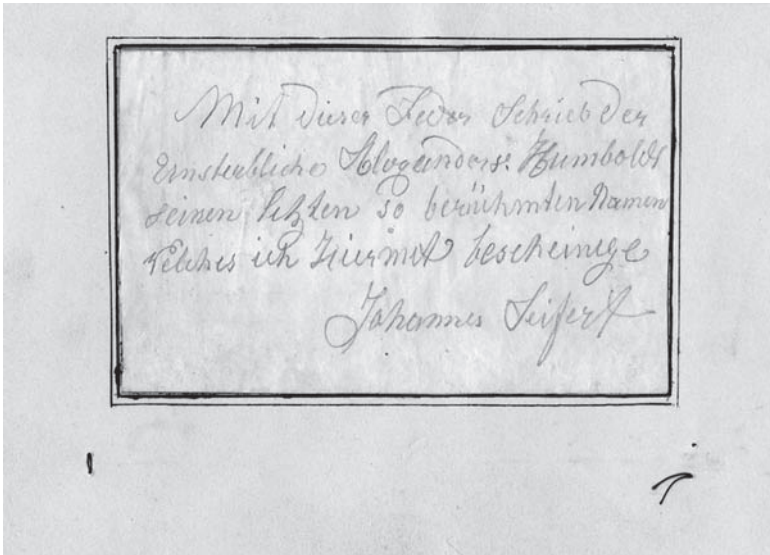 Mit dieser Feder Schrieb der
Unsterbliche Alexander v. Humboldt
seinen letzten so berühmten Namen
welches ich Hiermit bescheinige
Johannes Seifert